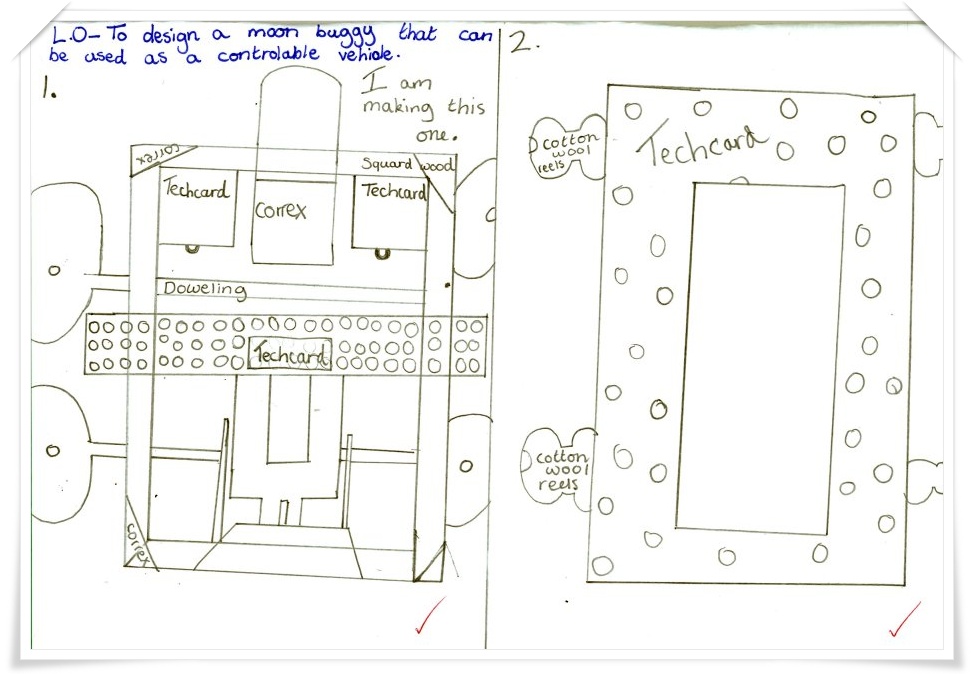 L.O- To design a moon buggy that can
be used as a controlable vehicle.
1.
I am
making this
one.
correx
Squard wood
Techcard
correx
Techcard
Doweling
Techcard
correx
2.
cotton
wool
reels
Techcard
cotton
wool
reels